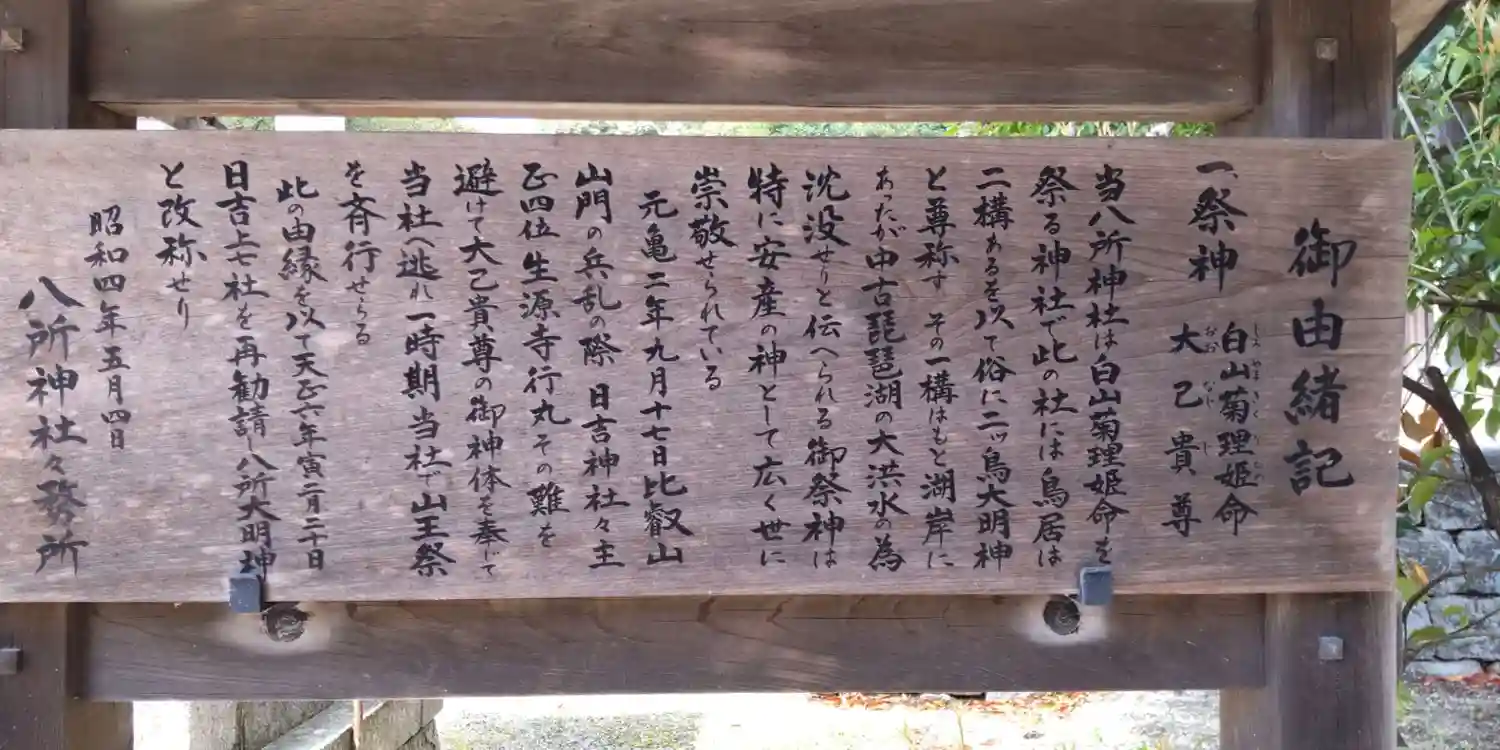 御由緒記
一、祭神 白山菊理姫命
大己貴尊
当八所神社は白山菊理姫命を
祭る神社で此の社には鳥居は
二構あるを以て俗に二ッ鳥大明神
と尊称す その一構はもと湖岸に
あったが中古琵琶湖の大洪水の為
沈没せりと伝へられる御祭神は
特に安産の神として広く世に
崇敬せられている
元亀二年九月十七日比叡山
山門の兵乱の際 日吉神社々主
正四位生源寺行丸その難を
避けて大己貴尊の御神体を奉じて
当社へ逃れ一時期当社で山王祭
を斉行せらる
此の由縁を以て天正六年寅二月二十日
日吉上七社を再勧請し八所大明神
と改称せり
昭和四年五月四日
八所神社々務所